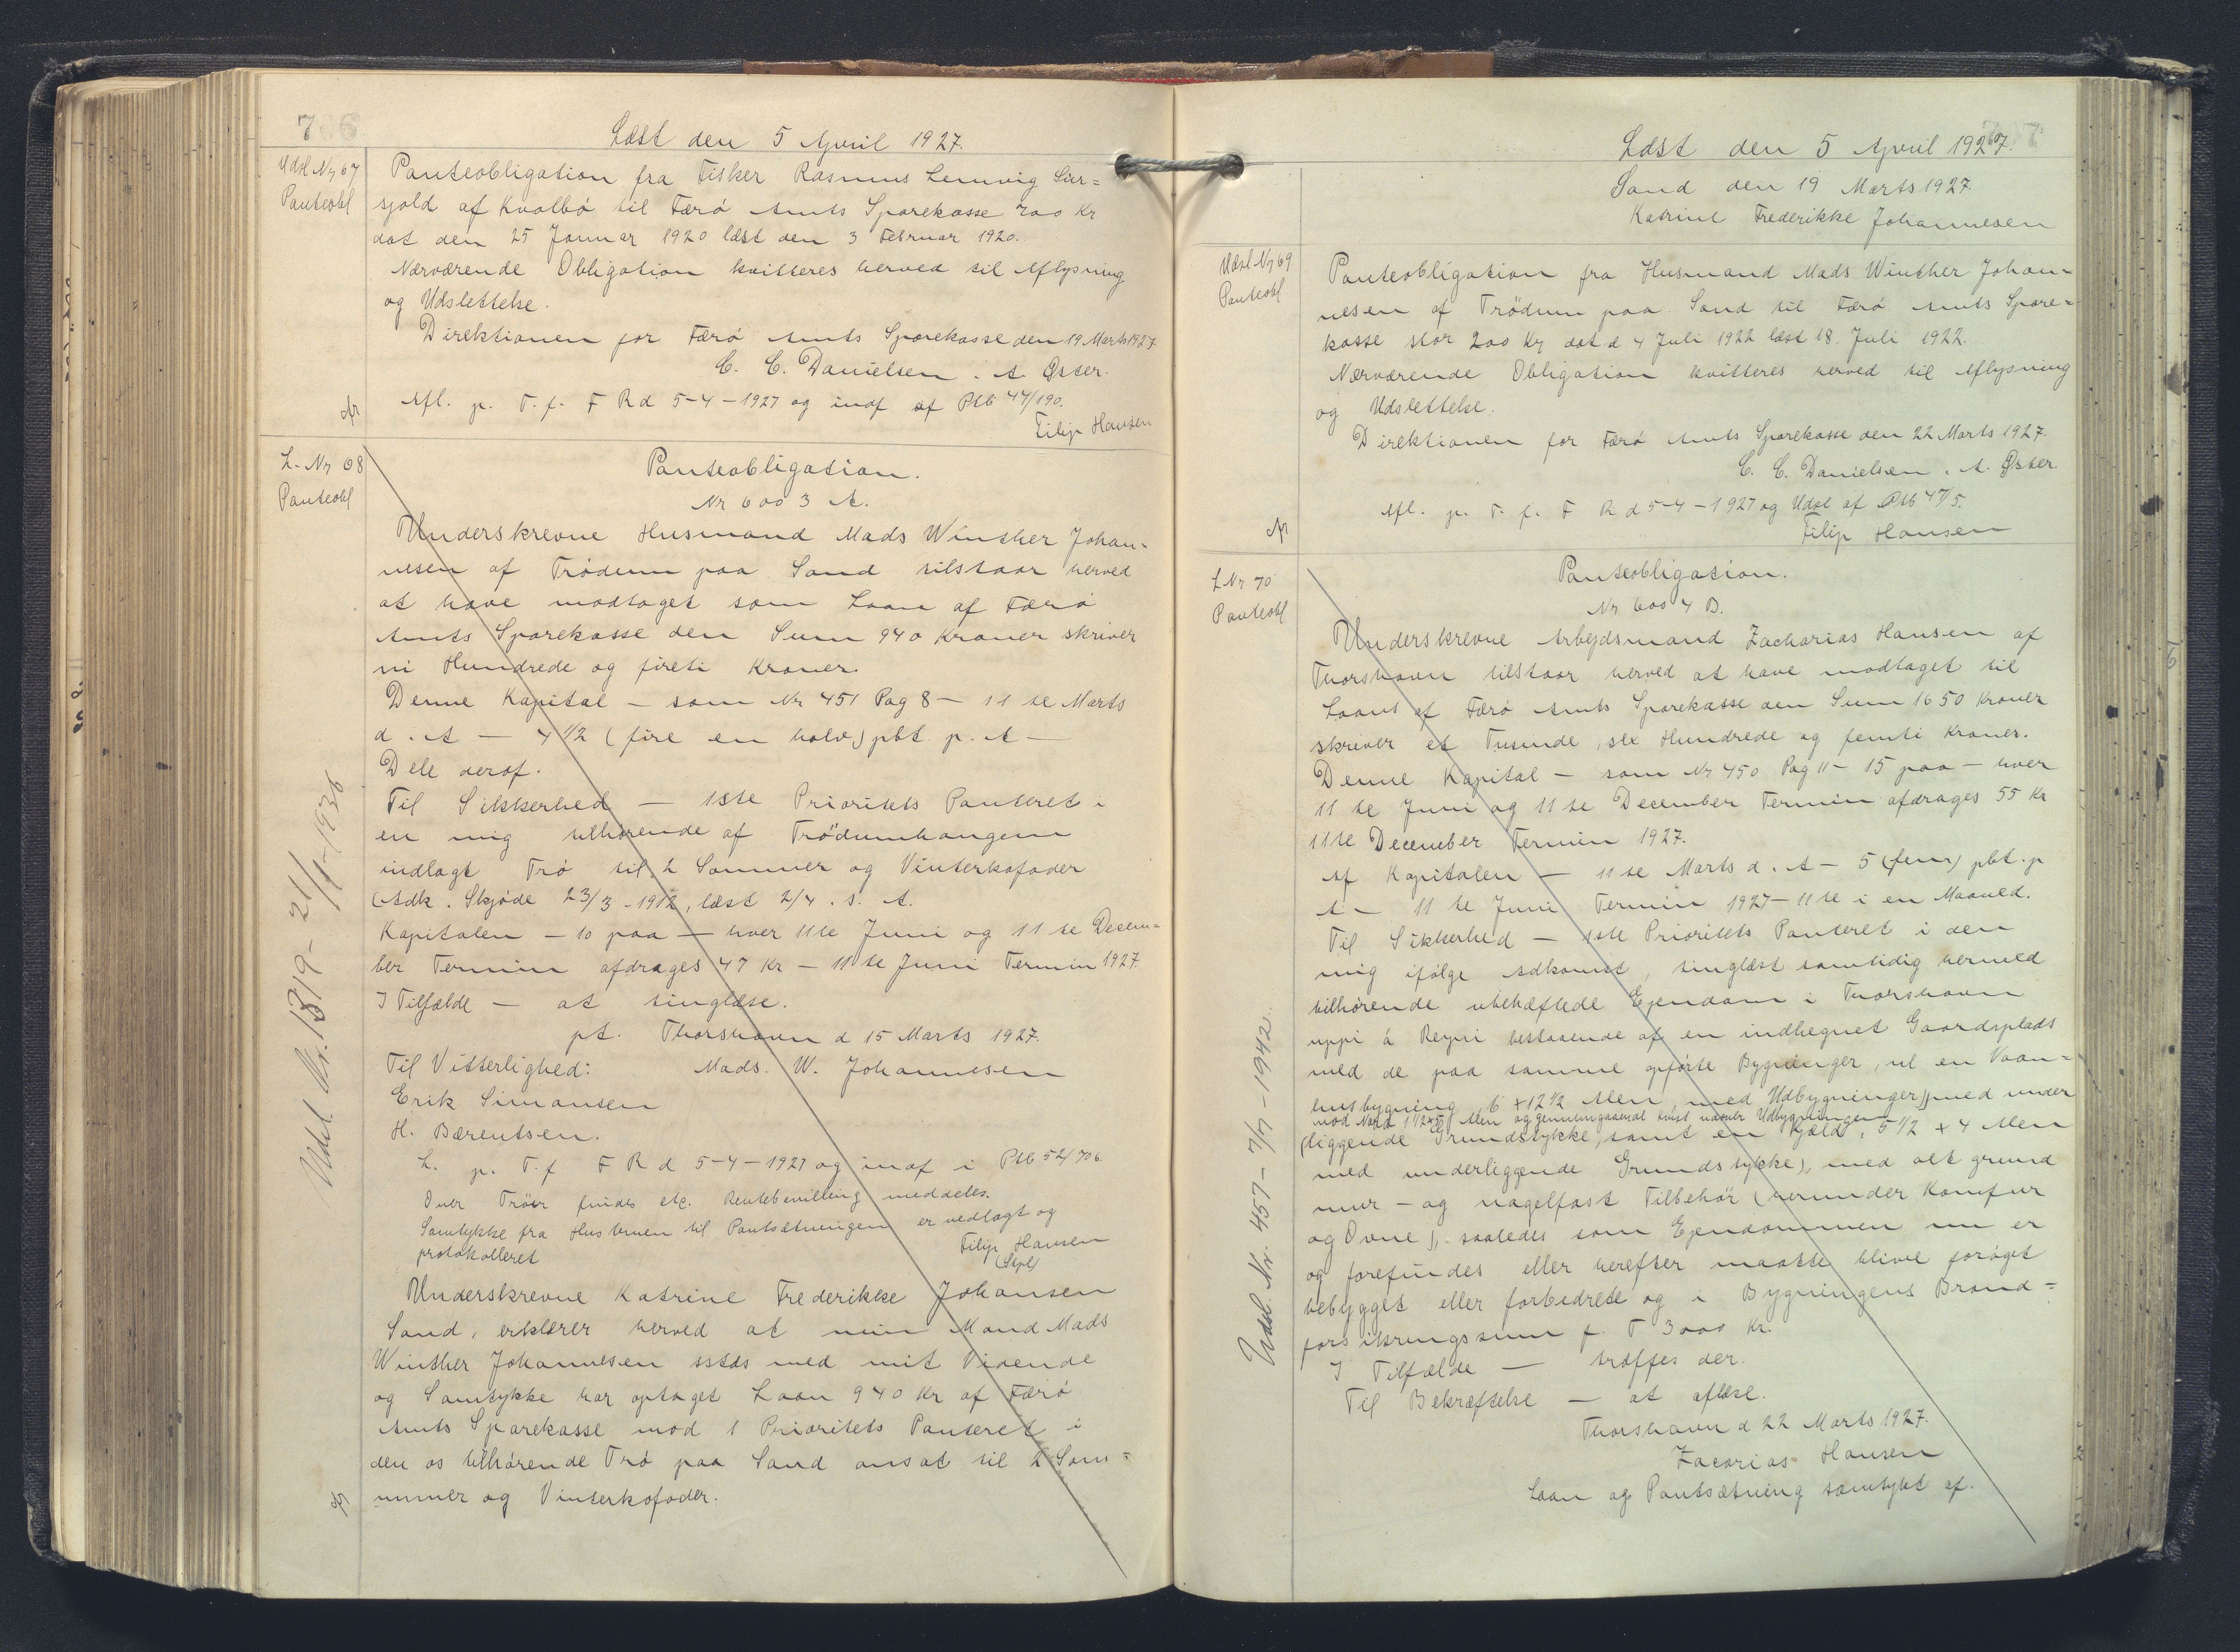 706
Læst den 5 April 1927.
Udsl. Nr 67
Panteobl
Panteobligation fra Fisker Rasmus Lemvig Sur=
sjold af Kvalbø til Færø Amts Sparekasse 700 Kr
dat den 25 Januar 1920 læst den 3 Februar 1920.
Nærværende Obligation kvitteres herved til Aflysning
og Udslettelse.
Direktionen for Færø Amts Sparekasse den 19 Marts 1927
C. C. Danielsen. A. Øster.
Afl. p. T. f. F R d 5-4-1927 og indf af Ptb 47/190.
Filip Hansen
L. Nr 68
Panteobl
Panteobligation.
Nr 6003 A.
Underskrevne Husmand Mads Winther Johan-
nesen af Trødum paa Sand tilstaar herved
at have modtaget som Laan af Færø
Amts Sparekasse den Sum 940 Kroner skriver
ni Hundrede og fireti Kroner.
Denne Kapital — som Nr 451 Pag 8 — 11 te Marts
d. A — 4 1/2 (fire en halv) pCt. p. A —
Dele deraf.
Til Sikkerhed — 1ste Prioritets Panteret i
en mig tilhørende af Trødumhaugem
indlagt Trø til 2 Sommer og Vinterkofoder
(Adk. Skjøde 23/3-1912, læst 2/4 . s. A.
Kapitalen — 10 paa — hver 11te Juni og 11 te Decem-
ber Termin afdrages 47 Kr — 11 te Juni Termin 1927.
I Tilfælde — at tinglæse.
pt. Thorshavn d 15 Marts 1927.
Til Vitterlighed: Mads. W. Johannesen
Erik Simonsen
H. Bærentsen.
L. p. T. f F R d 5-4-1927 og indf i Ptb 52/706.
Over Trøer findes etc. Rentebevilling meddeles.
Samtykke fra Hustruen til Pantsætningen er vedlagt og
protokolleret
Filip Hansen
Underskrevne Katrine Frederikke Johansen
Sand, erklærer herved at min Mand Mads
Winther Johannesen sstds med mit Vidende
og Samtykke har optaget Laan 940 Kr af Færø
Amts Sparekasse mod 1 Prioritets Panteret i
den os tilhørende Trø paa Sand ansat til 2 Som=
mmer og Vinterkofoder.
Udsl. Nr. 1319 - 21/1-1936
Læst den 5 April 1927.
Sand den 19 Marts 1927
Katrine Frederikke Johannesen
Udsl Nr 69
Panteobl
Panteobligation fra Husmand Mads Winther Johan-
nesen af Trødum paa Sand til Færø Amts Spare=
kasse stor 200 Kr dat d 4 Juli 1922 læst 18. Juli 1922.
Nærværende Obligation kvitteres herved til Aflysning
og Udslettelse.
Direktionen for Færø Amts Sparekasse den 22 Marts 1927.
C. C. Danielsen. A. Øster.
Afl. p. T. f. F R d 5-4-1927 og Udsl af Ptb 47/5.
Filip Hansen
L Nr 70
Panteobl
Panteobligation.
Nr 6004 B.
Underskrevne Arbejdsmand Zacharias Hansen af
Thorshavn tilstaar herved at have modtaget til
Laans af Færø Amts Sparekasse den Sum 1650 Kroner
skriver et Tusinde, sex Hundrede og femti Kroner.
Denne Kapital — som Nr 450 Pag 11 — 15 paa — hver
11 te Juni og 11 te December Termin afdrages 55 Kr
11te December Termin 1927.
Af Kapitalen — 11 te Marts d. A — 5 (fem) pCt. p
A — 11 te Juni Termin 1927 — 11 te i en Maaned.
Til Sikkerhed — 1ste Prioritets Panteret i den
mig ifølge Adkomst, tinglæst samtidig hermed
tilhørende ubehæftede Ejendom i Thorshavn
uppi á Reyni bestaaende af en indhegnet Gaardsplads
med de paa samme opførte Bygninger, til en Vaan=
husbygning 6 x 12 1/2 Alen, med Udbygninger) med under
mod Nord 1 1/2 x 5 Alen og gennemgaaende Kvist næmlr Udbygningen
(liggende Grundstykke, samt en Kjæld, 5 1/2 x 4 Alen
med underliggende Grundstykke), med alt grund
mur- og nagelfast Tilbehør (herunder Komfur
og Ovne), saaledes som Ejendommen nu er
og forefindes eller herefter maatte blive forøget
bebygget eller forbedrete og i Bygningens Brand=
forsikringssum f. T 3000 Kr.
I Tilfælde — træffes der.
Til Bekræftelse — at aflæse.
Thorshavn d 22 Marts 1927.
Zacarias Hansen
Laan og Pantsætning samtykt af.
Udsl. Nr. 457 - 7/7 - 1942.